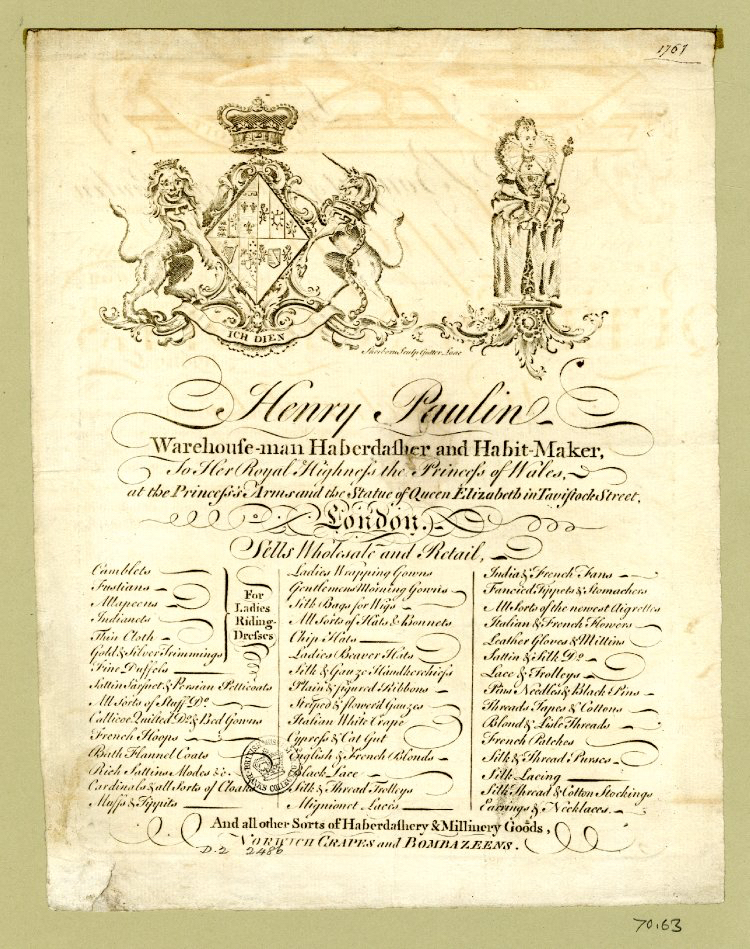 1767
ICH DIEN
Sherborn Sculp Gutter Lane
Henry Paulin
Warehouſe-man Haberdaſher and Habit-Maker,
To Her Royal Highneſs the Princeſs of Wales,
at the Princeſs's Arms and the Statue of Queen Elizabeth in Taviſtock Street,
London.
Sells Wholesale and Retail,
Camblets
Fustians
Allapeens
Indianets
Thin Cloth
Gold & Silver Trimmings
For
Ladies
Riding-
Dreſses
Fine Duffels
Sattin Sarsnet & Persian Petticoats
All Sorts of Stuff Do.
Callicoe Quilted Do. & Bed Gowns
French Hoops
Bath Flannel Coats
Rich Sattins Modes &c.
Cardinals & all Sorts of Cloaks
Muffs & Tippits
Ladies Wrapping Gowns
Gentlemens Morning Gowns
Silk Bags for Wigs
All Sorts of Hats & Bonnets
Chip Hats
Ladies Beaver Hats
Silk & Gauze Handkerchiefs
Plain & figured Ribbons
Striped & flower'd Gauzes
Italian White Crape
Cypreſs & Cat Gut
English & French Blonds
Black Lace
Silk & Thread Trolleys
Mignionet Laces
India & French Fans
Fancied Tippets & Stomachers
All Sorts of the newest Aigrettes
Italian & French Flowers
Leather Gloves & Mittins
Sattin & Silk Do.
Lace & Trolleys
Pins Needles & Black Pins
Threads Tapes & Cottons
Blond & Lisle Threads
French Patches
Silk & Thread Purses
Silk Lacing
Silk Thread & Cotton Stockings
Earrings & Necklaces.
And all other Sorts of Haberdaſhery & Millinery Goods,
NORWICH CRAPES and BOMBAZEENS.
D.2 2486
70.63